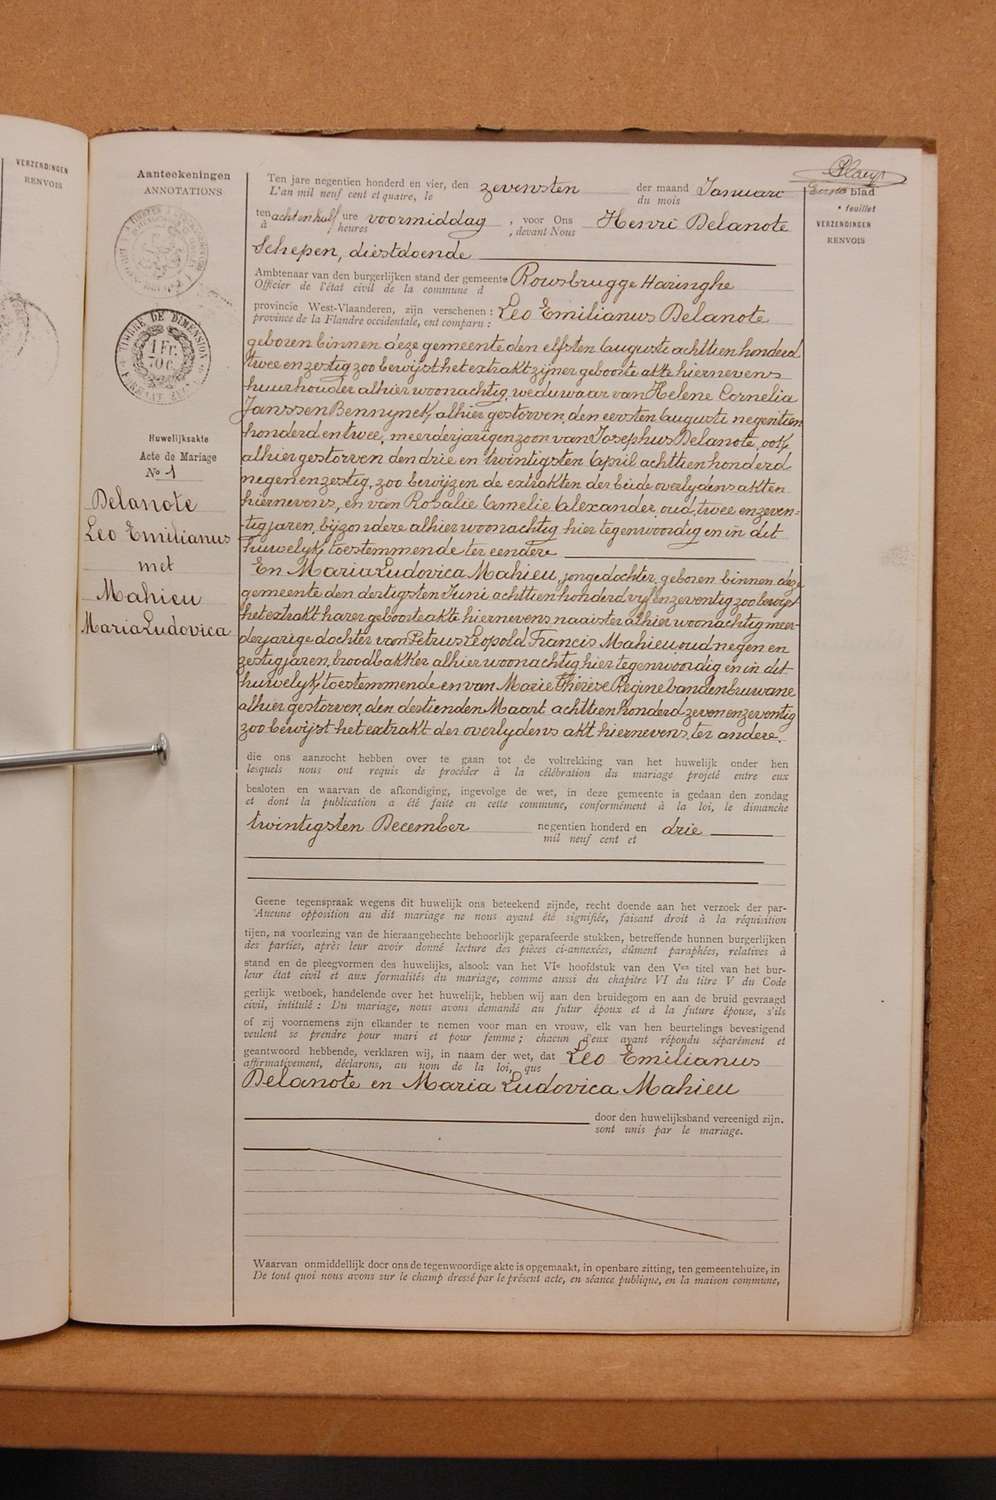 VERZENDINGEN
RENVOIS
Aanteekeningen
ANNOTATIONS
TIMBRE DE DIMENSION
1 Fr.
70 C.
Huwelijksakte
Acte de Mariage
No 1
Delanote
Leo Emilianus
met
Mahieu
Maria Ludovica
blad
feuillet
VERZENDINGEN
RENVOIS
Ten jare negentien honderd en vier, den zevensten der maand Januari
L'an mil neuf cent et quatre, le du mois
ten achten half ure voormiddag, voor Ons Henri Delanote
à heures , devant Nous
Schepen, dienstdoende
Ambtenaar van den burgerlijken stand der gemeente Rousbrugge Haringhe
Officier de l'état civil de la commune d
provincie West-Vlaanderen, zijn verschenen : Leo Emilianus Delanote
province de la Flandre occidentale, ont comparu :
geboren binnen deze gemeente den elfsten Augusti achttien honderd
twee en zestig zoo bewijst het extrakt zijner geboorte akte hiernevens
huurhouder alhier woonachtig, weduwaar van Helene Cornelia
Janssen Bennynck, alhier gestorven, den eersten Augusti negentien
honderd en twee, meerderjarigen zoon van Josephus Delanote, ook
alhier gestorven den drie en twintigsten April achttien honderd
negen en zestig, zoo bewijzen de extrakten der beide overlydens akten
hiernevens, en van Rosalie Amelie Alexander, oud twee en zeven-
-tig jaren, bijzondere alhier woonachtig hier tegenwoordig en in dit
huwelijk toestemmende ter eendere
En Maria Ludovica Mahieu, jongedochter, geboren binnen deze
gemeente den dertigsten Juni achttien honderd vijf en zeventig zoo bewijst
het extrakt harer geboorteakte hiernevens naaister alhier woonachtig meer-
derjarige dochter van Petrus Leopold Francis Mahieu, oud negen en
zestig jaren, broodbakker alhier woonachtig, hier tegenwoordig en in dit
huwelijk toestemmende en van Marie Thérèse Régine Vandenbruwane
alhier gestorven, den destienden Maart achttien honderd zeven en zeventig
zoo bewijst het extrakt der overlydens akt hiernevens, ter andere.
die ons aanzocht hebben over te gaan tot de voltrekking van het huwelijk onder hen
lesquels nous ont requis de procéder à la célébration du mariage projeté entre eux
besloten en waarvan de afkondiging, ingevolge de wet, in deze gemeente is gedaan den zondag
et dont la publication a été faite en cette commune, conformément à la loi, le dimanche
twintigsten December negentien honderd en drie
mil neuf cent et
Geene tegenspraak wegens dit huwelijk ons beteekend zijnde, recht doende aan het verzoek der par-
Aucune opposition au dit mariage ne nous ayant été signifiée, faisant droit à la réquisition
tijen, na voorlezing van de hieraangehechte behoorlijk geparafeerde stukken, betreffende hunnen burgerlijken
des parties, après leur avoir donné lecture des pièces ci-annexées, dûment paraphées, relatives à
stand en de pleegvormen des huwelijks, alsook van het VIe hoofdstuk van den Ven titel van het bur-
leur état civil et aux formalités du mariage, comme aussi du chapitre VI du titre V du Code
gerlijk wetboek, handelende over het huwelijk, hebben wij aan den bruidegom en aan de bruid gevraagd
civil, intitulé : Du mariage, nous avons demandé au futur époux et à la future épouse, s'ils
of zij voornemens zijn elkander te nemen voor man en vrouw, elk van hen beurtelings bevestigend
veulent se prendre pour mari et pour femme ; chacun d'eux ayant répondu séparément et
geantwoord hebbende, verklaren wij, in naam der wet, dat Leo Emilianus
affirmativement, déclarons, au nom de la loi, que
Delanote en Maria Ludovica Mahieu
door den huwelijksband vereenigd zijn.
sont unis par le mariage.
Waarvan onmiddellijk door ons de tegenwoordige akte is opgemaakt, in openbare zitting, ten gemeentehuize, in
De tout quoi nous avons sur le champ dressé par le présent acte, en séance publique, en la maison commune,